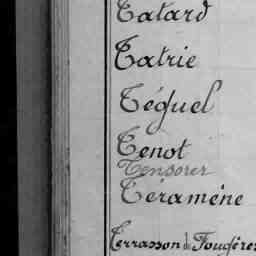 Tatard
Tatrie
Téquel
Tenot
Tensorer
Téramène
Terrasson de Fougères